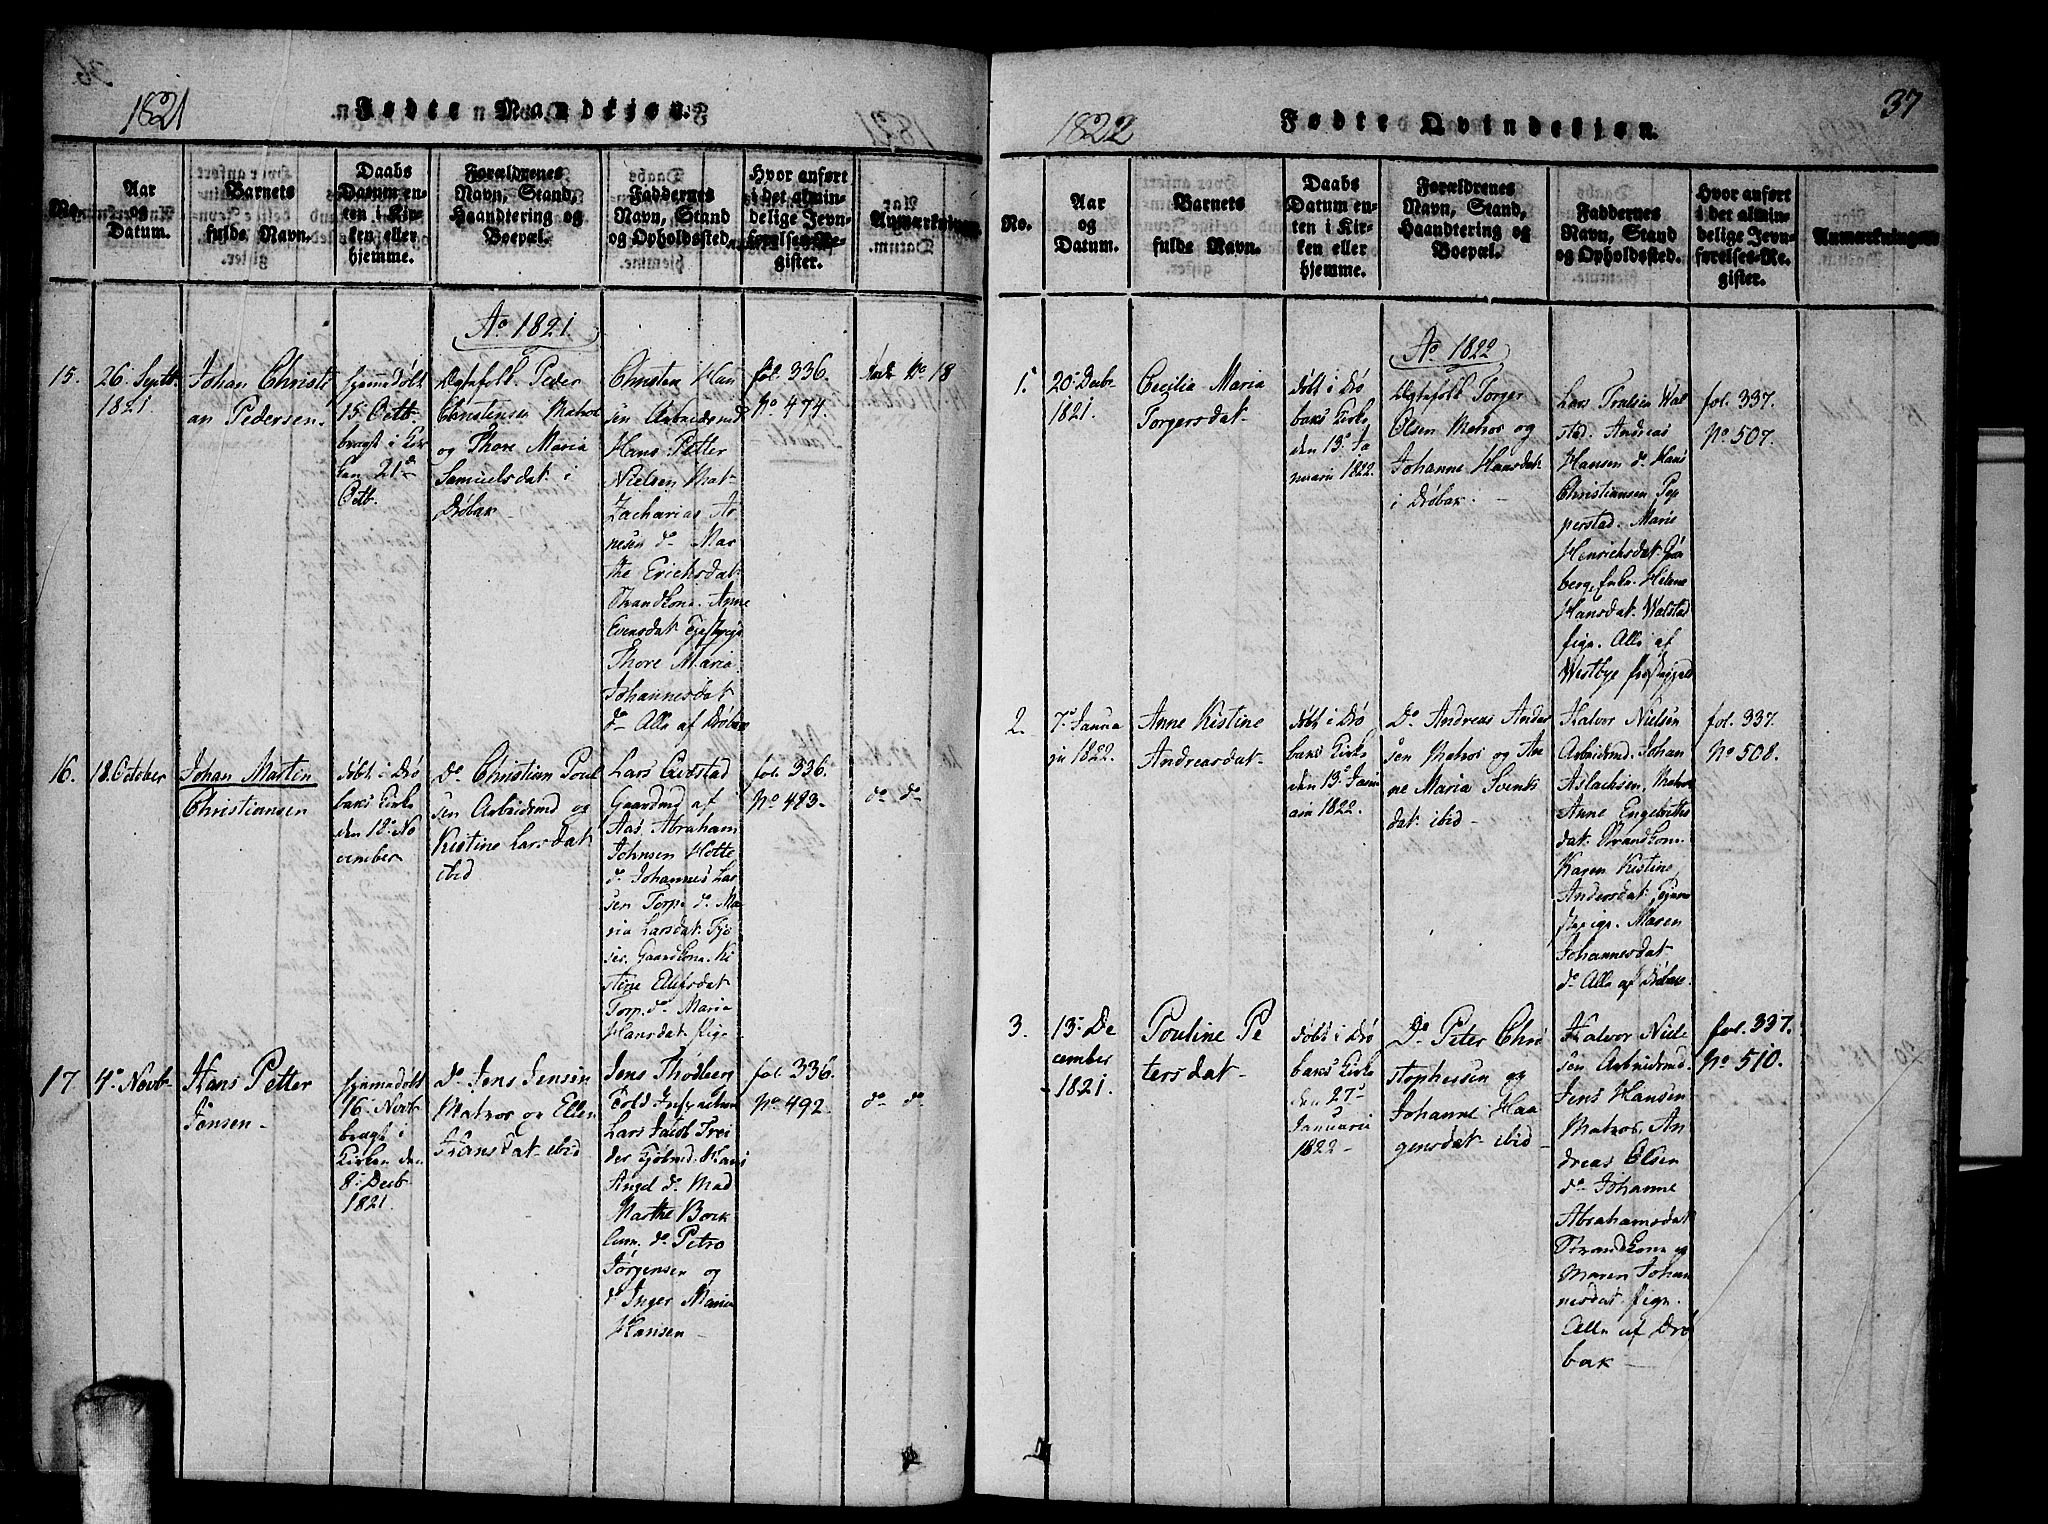 1821
Fødte Mandkjøn.
No.
Aar
og
Datum.
Barnets
fulde Navn.
Daabs
Datum en-
ten i Kir-
ken eller
hjemme.
Forældrenes
Navn, Stand,
Haandtering og
Boepæl.
Faddernes
Navn, Stand
og Opholdssted.
Hvor anført
i det almin-
delige Jevn-
førelses-Re-
gister.
Anmærkninger
Ao 1821.
15.
26. Septb.
1821.
Johan Christi
an Pedersen.
hjemmedøbt
15. Octb.
bragt i Kir
ken 21de
Octb.
Ægtefolk Peder
Christensen Matros
og Thore Maria
Samuelsdat i
Drøbak
Christen Han
sen Arbeidsmd
Hans Petter
Nielsen Mat-
Zacharias Ar
nesen do Mar
the Erichsdat
Strandkone. Anne
Evensdat
Thore Maria
Johannesdat
do Alle af Drøbak
fol. 336.
No 474.
No 18
16.
18. October
Johan Martin
Christiansen
døbt i Drø
baks Kirke
den 18. No
vember
Do Christian Poul
sen Arbeidsmd og
Kistine Larsdat
ibid
Lars Gudstad
Gaardmd af
Aas. Abraham
Johnsen Hotte
do Johannes Lar
sen Torp do Ma
ria Larsdat
Gaardkone. Ki
stine
Torp. do Maria
Hansdat Pige
fol. 336.
No 483.
do do
17
4de Novb.
Hans Petter
Jensen
hjemmedøbt
16. Novb.
bragt i
Kirken den
8. Decb.
1821.
Do Jens Jensen
Matros og Ellen
Fransdat ibid
Jens Thodberg
Told Inspecteur
Lars Jacob
der Kjøbmd. Hans
Angel do. Mad
Marthe
do Petro
Jørgensen og
do Inger Maria
Hansen
fol. 336.
No 492.
do do
1822
Fødte Qvindekjøn.
37
No.
Aar
og
Datum.
Barnets
fulde Navn.
Daabs
Datum en-
ten i Kir-
ken eller
hjemme.
Forældrenes
Navn, Stand,
Haandtering og
Boepæl.
Faddernes
Navn, Stand
og Opholdssted.
Hvor anført
i det almin-
delige Jevn-
førelses-Re-
gister.
Anmærkninger
Ao 1822
1.
20. Decbr.
1821.
Cecilia Maria
Torgersdat.
døbt i Drø
baks Kirke
den 13. Ja
nuarii 1822.
Ægtefolk Torger
Olsen Matros og
Johanne Hansdat
i Drøbak.
Lars Truelsen Wal
stad. Andreas
Hansen do Hans
Christiansen Pep
perstad. Marie
Henrichsdat
berg, Enke. Helene
Hansdat. Walstad
Pige. Alle af
Westbye Præstegjeld
fol. 337.
No 507.
2.
7. Janua
rii 1822.
Anne Kistine
Andreasdat.
døbt i Drø
baks Kirke
den 13. Janu
arii 1822.
Do Andreas Ander
sen Matros og An
ne Maria Svends
dat ibid
Halvor Nielsen
Arbeidsmd. Johan
Aslachsen, Matros
Anne Engebrets
dat. Strandkone.
Karen Kistine
Andersdat. Tjene
stepige. Maren
Johannesdat
do Alle af Drøbak.
fol. 337.
No 508.
3.
13. De
cember
1821.
Pouline Pe
tersdat
døbt i Drø
baks Kirke
den 27.
Januarii
1822
Do Peter Chri
stophersen og
Johanne Haa
gensdat ibid
Halvor Niel
sen Arbeidsmd.
Jens Hansen
Matros, An
dreas Olsen
do Johanne
Abrahamsdat
Strandkone og
Maren Johan
nesdat Pige.
Alle af Drø
bak
fol. 337.
No 510.